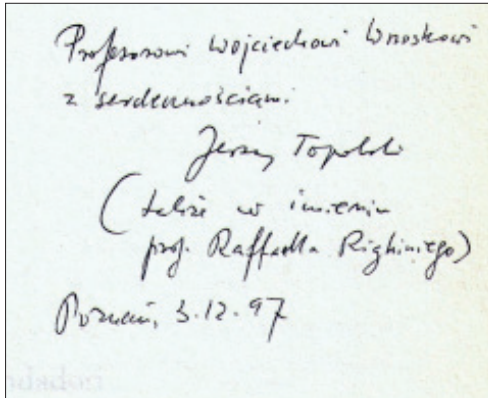 Profesorowi Wojciechowi Wrzoskowi
z serdecznościami
Jerzy Topolski
(także w imieniu
prof. Raffaella Righiniego)
Poznań, 3.12.97
ndadori